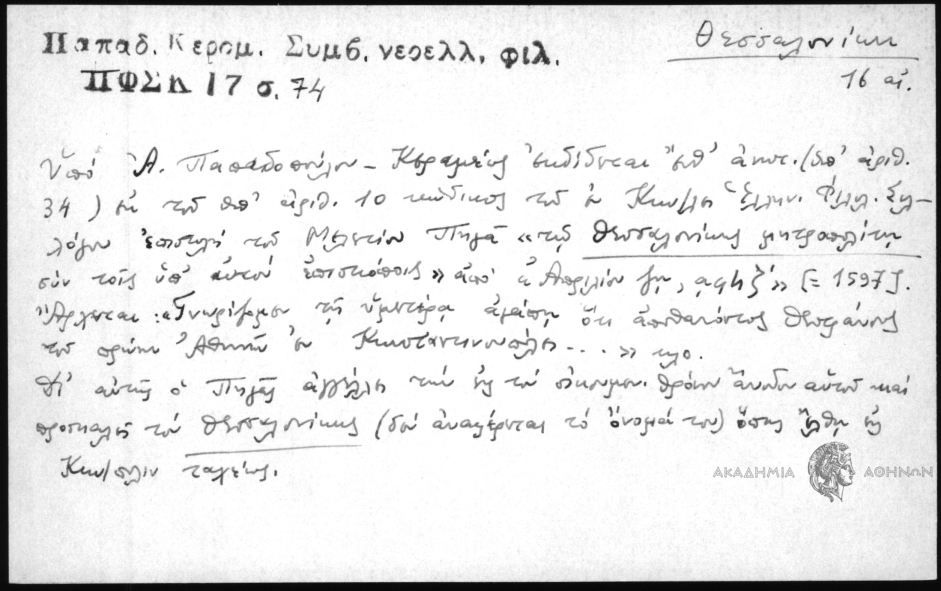 Παπαδ. Κεραμ. Συμβ. νεοελλ. φιλ.
ΠΦΣΚ 17 σ. 74
Θεσσαλονίκη
16 αἰ.
Ὑπό Ἀ. Παπαδοπούλου - Κεραμέως ἐκδίδεται ὑπ' ἀριθ.
34) ἐκ τοῦ ὑπ' ἀριθ. 10 κώδικος τοῦ ἐν Κων/λει Ἑλλην. Φιλολ. Συλ-
λόγου ἐπιστολή τοῦ Μελετίου Πηγᾶ «τῷ Θεσσαλονίκης μητροπολίτῃ
σύν τοῖς ὑπ' αὐτόν ἐπισκόποις» ἀπό Ἀπριλίου ͵αφϟζ´» [= 1597].
Ἄρχεται: «Γνωρίζομεν τῇ ὑμετέρᾳ ἀγάπῃ ὅτι ἀποθανόντος Θεοφάνους
τοῦ πρώην Ἀθηνῶν ἐν Κωνσταντινουπόλει....» κλπ.
Δι' αὐτῆς ὁ Πηγᾶς ἀγγέλλει τήν εἰς τόν οἰκουμεν. θρόνον ἄνοδον αὐτοῦ καί
προσκαλεῖ τόν Θεσσαλονίκης (δέν ἀναφέρεται τό ὄνομά του) ὅπως ἔλθῃ εἰς
Κων/πολιν ταχέως.
ΑΚΑΔΗΜΙΑ ΑΘΗΝΩΝ